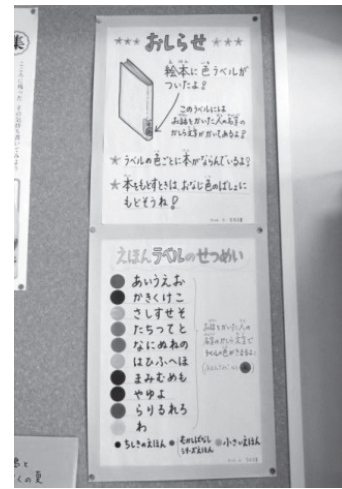 ★★★ おしらせ ★★★
絵本に色ラベルが
ついたよ!
このラベルには
お話をかいた人の名字の
かしら文字がかいてあるよ!
★ ラベルの色ごとに本がならんでいるよ!
★ 本をもどすときは、おなじ色のばしょに
もどそうね!
えほんラベルのせつめい
あいうえお
かきくけこ
さしすせそ
たちつてと
なにぬねの
はひふへほ
まみむめも
やゆよ
らりるれろ
わ
お話をかいた人の
名字のかしら文字で
ラベルの色がきまるよ!
ちしきのえほん
小さいえほん